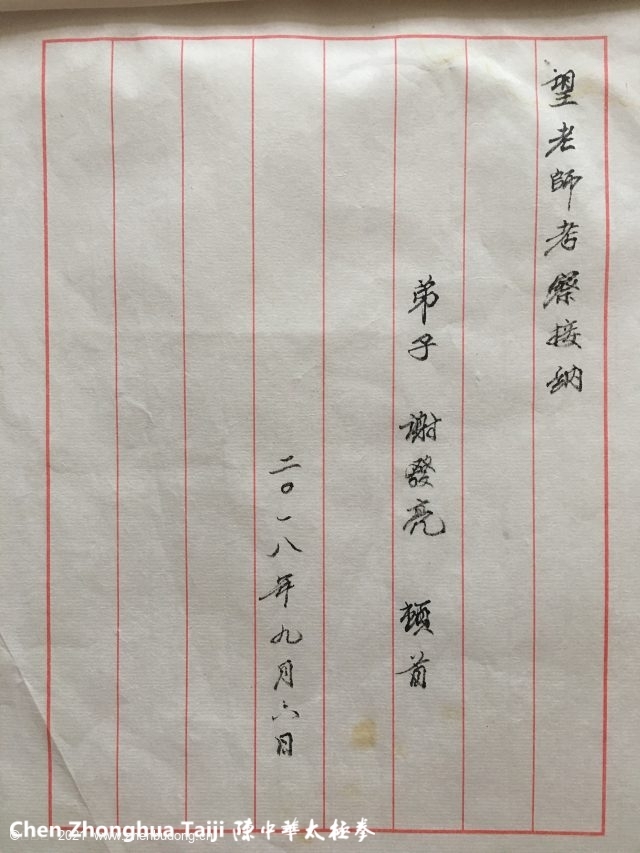 望老師考察接納
弟子 謝發亮 頓首
二〇一八年九月六日
Chen Zhonghua Taiji 陳中華太極拳
© 2021 www.zhenbudong.cn